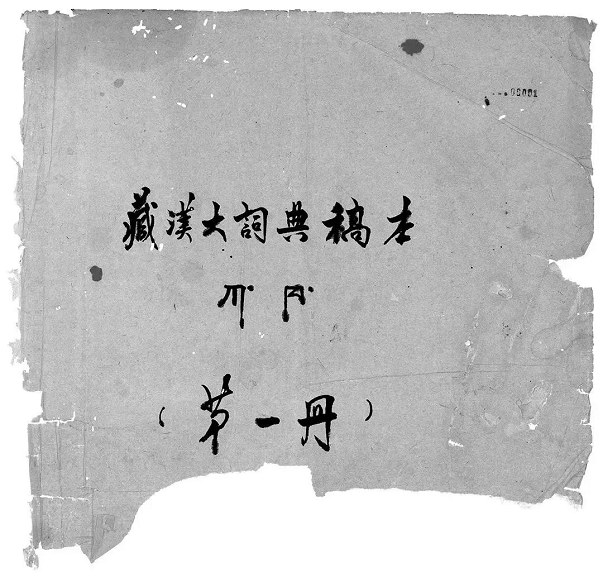 00001
藏漢大詞典稿本
ཀ་ཁ་
（第一册）